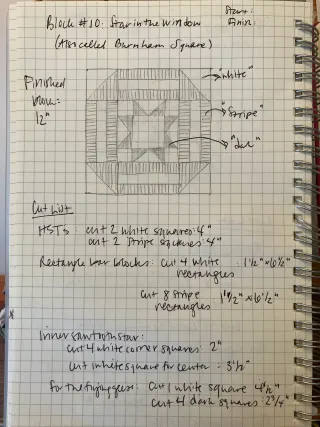 Block #10: Star in the Window
Start:
Finish:
(Also called Burnham Square)
Finished
block=
12"
"white"
"stripe"
"dark"
Cut List
HSTs: cut 2 white squares: 4"
cut 2 stripe squares: 4"
Rectangle bar blocks: cut 4 white : 1 1/2" x 6 1/2"
rectangles
cut 8 stripe 1 1/2" x 6 1/2"
rectangles
Inner sawtooth star:
cut 4 white corner squares: 2"
cut 1 white square for center = 3 1/2"
for the flying geese: cut 1 white square 4 1/4"
cut 4 dark squares: 2 3/4"